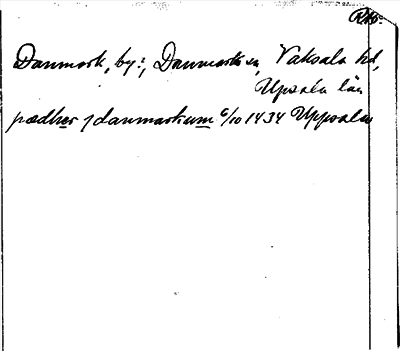 Danmark, by:, Danmarks sn, Vaksala hd,
Upsala län
pædher j danmarkum 6/10 1434 Uppsala